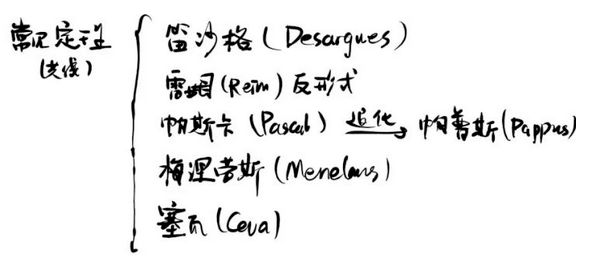 常见定理
(共线)
笛沙格 (Desargues)
雷姆 (Reim) 反形式
帕斯卡 (Pascal) 退化→ 帕普斯 (Pappus)
梅涅劳斯 (Menelaus)
塞瓦 (Ceva)